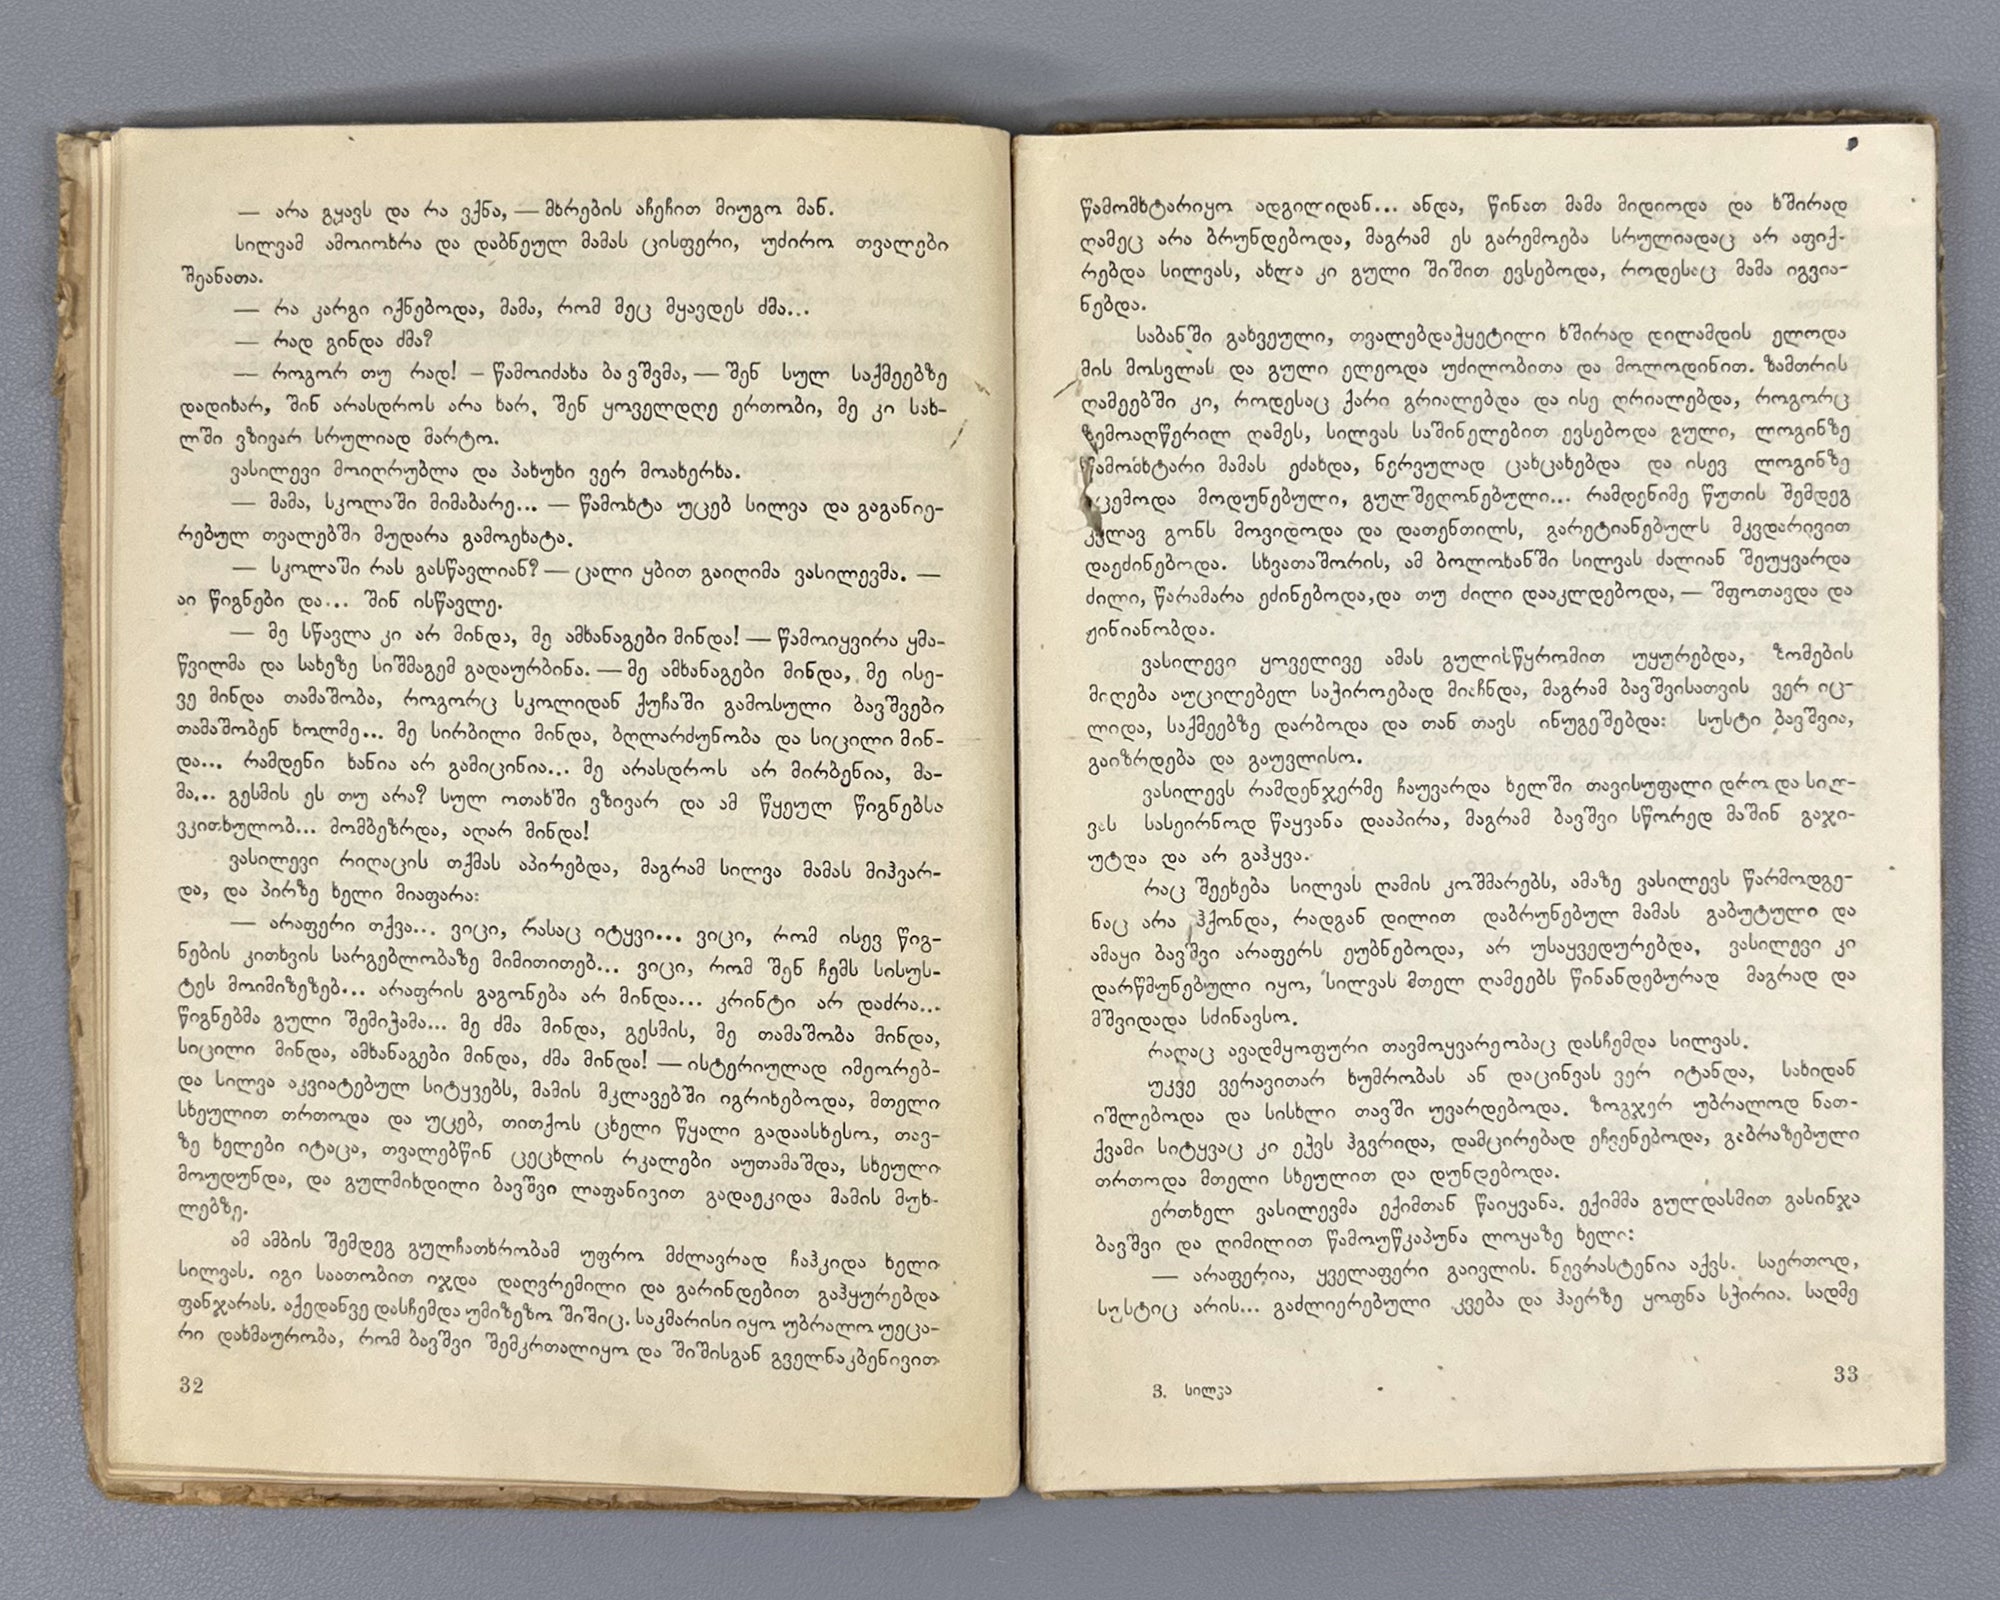 — არა გყავს და რა ვქნა, — მხრების აჩეჩით მიუგო მან.
სილვამ ამოიოხრა და დაბნეულ მამას ცისფერი, უძირო თვალები
შეანათა.
— რა კარგი იქნებოდა, მამა, რომ მეც მყავდეს ძმა...
— რად გინდა ძმა?
— როგორ თუ რად! — წამოიძახა ბავშვმა, — შენ სულ საქმეებზე
დადიხარ, შინ არასდროს არა ხარ, შენ ყოველდღე ერთობი, მე კი სახ-
ლში ვზივარ სრულიად მარტო.
ვასილევი მოიღრუბლა და პასუხი ვერ მოახერხა.
— მამა, სკოლაში მიმაბარე... — წამოხტა უცებ სილვა და გაგანიე-
რებულ თვალებში მუდარა გამოეხატა.
— სკოლაში რას გასწავლიან? — ცალი ყბით გაიღიმა ვასილევმა. —
აი წიგნები და... შინ ისწავლე.
— მე სწავლა კი არ მინდა, მე ამხანაგები მინდა! — წამოიყვირა ყმა-
წვილმა და სახეზე სიშმაგემ გადაურბინა. — მე ამხანაგები მინდა, მე ისე-
ვე მინდა თამაშობა, როგორც სკოლიდან ქუჩაში გამოსული ბავშვები
თამაშობენ ხოლმე... მე სირბილი მინდა, ბღლარძუნობა და სიცილი მინ-
და... რამდენი ხანია არ გამიცინია... მე არასდროს არ მირბენია, მა-
მა... გესმის ეს თუ არა? სულ ოთახში ვზივარ და ამ წყეულ წიგნებსა
ვკითხულობ... მომბეზრდა, აღარ მინდა!
ვასილევი რიღაცის თქმას აპირებდა, მაგრამ სილვა მამას მიჰვარ-
და, და პირზე ხელი მიაფარა:
— არაფერი თქვა... ვიცი, რასაც იტყვი... ვიცი, რომ ისევ წიგ-
ნების კითხვის სარგებლობაზე მიმითითებ... ვიცი, რომ შენ ჩემს სისუს-
ტეს მოიმიზეზებ... არაფრის გაგონება არ მინდა... კრინტი არ დაძრა...
წიგნებმა გული შემიჭამა... მე ძმა მინდა, გესმის, მე თამაშობა მინდა,
სიცილი მინდა, ამხანაგები მინდა, ძმა მინდა! — ისტერიულად იმეორებ-
და სილვა აკვიატებულ სიტყვებს, მამის მკლავებში იგრიხებოდა, მთელი
სხეულით თრთოდა და უცებ, თითქოს ცხელი წყალი გადაასხესო, თავ-
ზე ხელები იტაცა, თვალებწინ ცეცხლის რკალები აუთამაშდა, სხეული
მოუდუნდა, და გულმიხდილი ბავშვი ლაფანივით გადაეკიდა მამის მუხ-
ლებზე.
ამ ამბის შემდეგ გულჩათხრობამ უფრო მძლავრად ჩაჰკიდა ხელი
სილვას. იგი საათობით იჯდა დაღვრემილი და გარინდებით გაჰყურებდა
ფანჯარას. აქედანვე დასჩემდა უმიზეზო შიშიც. საკმარისი იყო უბრალო უეცა-
რი დახმაურობა, რომ ბავშვი შემკრთალიყო და შიშისგან გველნაკბენივით
32
წამომხტარიყო ადგილიდან... ანდა, წინათ მამა მიდიოდა და ხშირად
ღამეც არა ბრუნდებოდა, მაგრამ ეს გარემოება სრულიადაც არ აფიქ-
რებდა სილვას, ახლა კი გული შიშით ევსებოდა, როდესაც მამა იგვია-
ნებდა.
საბანში გახვეული, თვალებდაჭყეტილი ხშირად დილამდის ელოდა
მის მოსვლას და გული ელეოდა უძილობითა და მოლოდინით. ზამთრის
ღამეებში კი, როდესაც ქარი გრიალებდა და ისე ღრიალებდა, როგორც
ზემოაღწერილ ღამეს, სილვას საშინელებით ევსებოდა გული, ლოგინზე
წამომხტარი მამას ეძახდა, ნერვულად ცახცახებდა და ისევ ლოგინზე
ეცემოდა მოდუნებული, გულშეღონებული... რამდენიმე წუთის შემდეგ
კვლავ გონს მოვიდოდა და დათენთილს, გარეტიანებულს მკვდარივით
დაეძინებოდა. სხვათაშორის, ამ ბოლოხანში სილვას ძალიან შეუყვარდა
ძილი, წარამარა ეძინებოდა, და თუ ძილი დააკლდებოდა, — შფოთავდა და
ჟინიანობდა.
ვასილევი ყოველივე ამას გულისწყრომით უყურებდა, ზომების
მიღება აუცილებელ საჭიროებად მიაჩნდა, მაგრამ ბავშვისათვის ვერ იც-
ლიდა, საქმეებზე დარბოდა და თან თავს ინუგეშებდა: სუსტი ბავშვია,
გაიზრდება და გაუვლისო.
ვასილევს რამდენჯერმე ჩაუვარდა ხელში თავისუფალი დრო და სილ-
ვას სასეირნოდ წაყვანა დააპირა, მაგრამ ბავშვი სწორედ მაშინ გაჯი-
უტდა და არ გაჰყვა.
რაც შეეხება სილვას ღამის კოშმარებს, ამაზე ვასილევს წარმოდგე-
ნაც არა ჰქონდა, რადგან დილით დაბრუნებულ მამას გაბუტული და
ამაყი ბავშვი არაფერს ეუბნებოდა, არ უსაყვედურებდა, ვასილევი კი
დარწმუნებული იყო, სილვას მთელ ღამეებს წინანდებურად მაგრად და
მშვიდადა სძინავსო.
რაღაც ავადმყოფური თავმოყვარეობაც დასჩემდა სილვას.
უკვე ვერავითარ ხუმრობას ან დაცინვას ვერ იტანდა, სახიდან
იშლებოდა და სისხლი თავში უვარდებოდა. ზოგჯერ უბრალოდ ნათ-
ქვამი სიტყვაც კი ეჭვს ჰგვრიდა, დამცირებად ეჩვენებოდა, გაბრაზებული
თრთოდა მთელი სხეულით და დუნდებოდა.
ერთხელ ვასილევმა ექიმთან წაიყვანა. ექიმმა გულდასმით გასინჯა
ბავშვი და ღიმილით წამოუწკაპუნა ლოყაზე ხელი:
— არაფერია, ყველაფერი გაივლის. ნევრასტენია აქვს. საერთოდ,
სუსტიც არის... გაძლიერებული კვება და ჰაერზე ყოფნა სჭირია. სადმე
3. სილვა
33